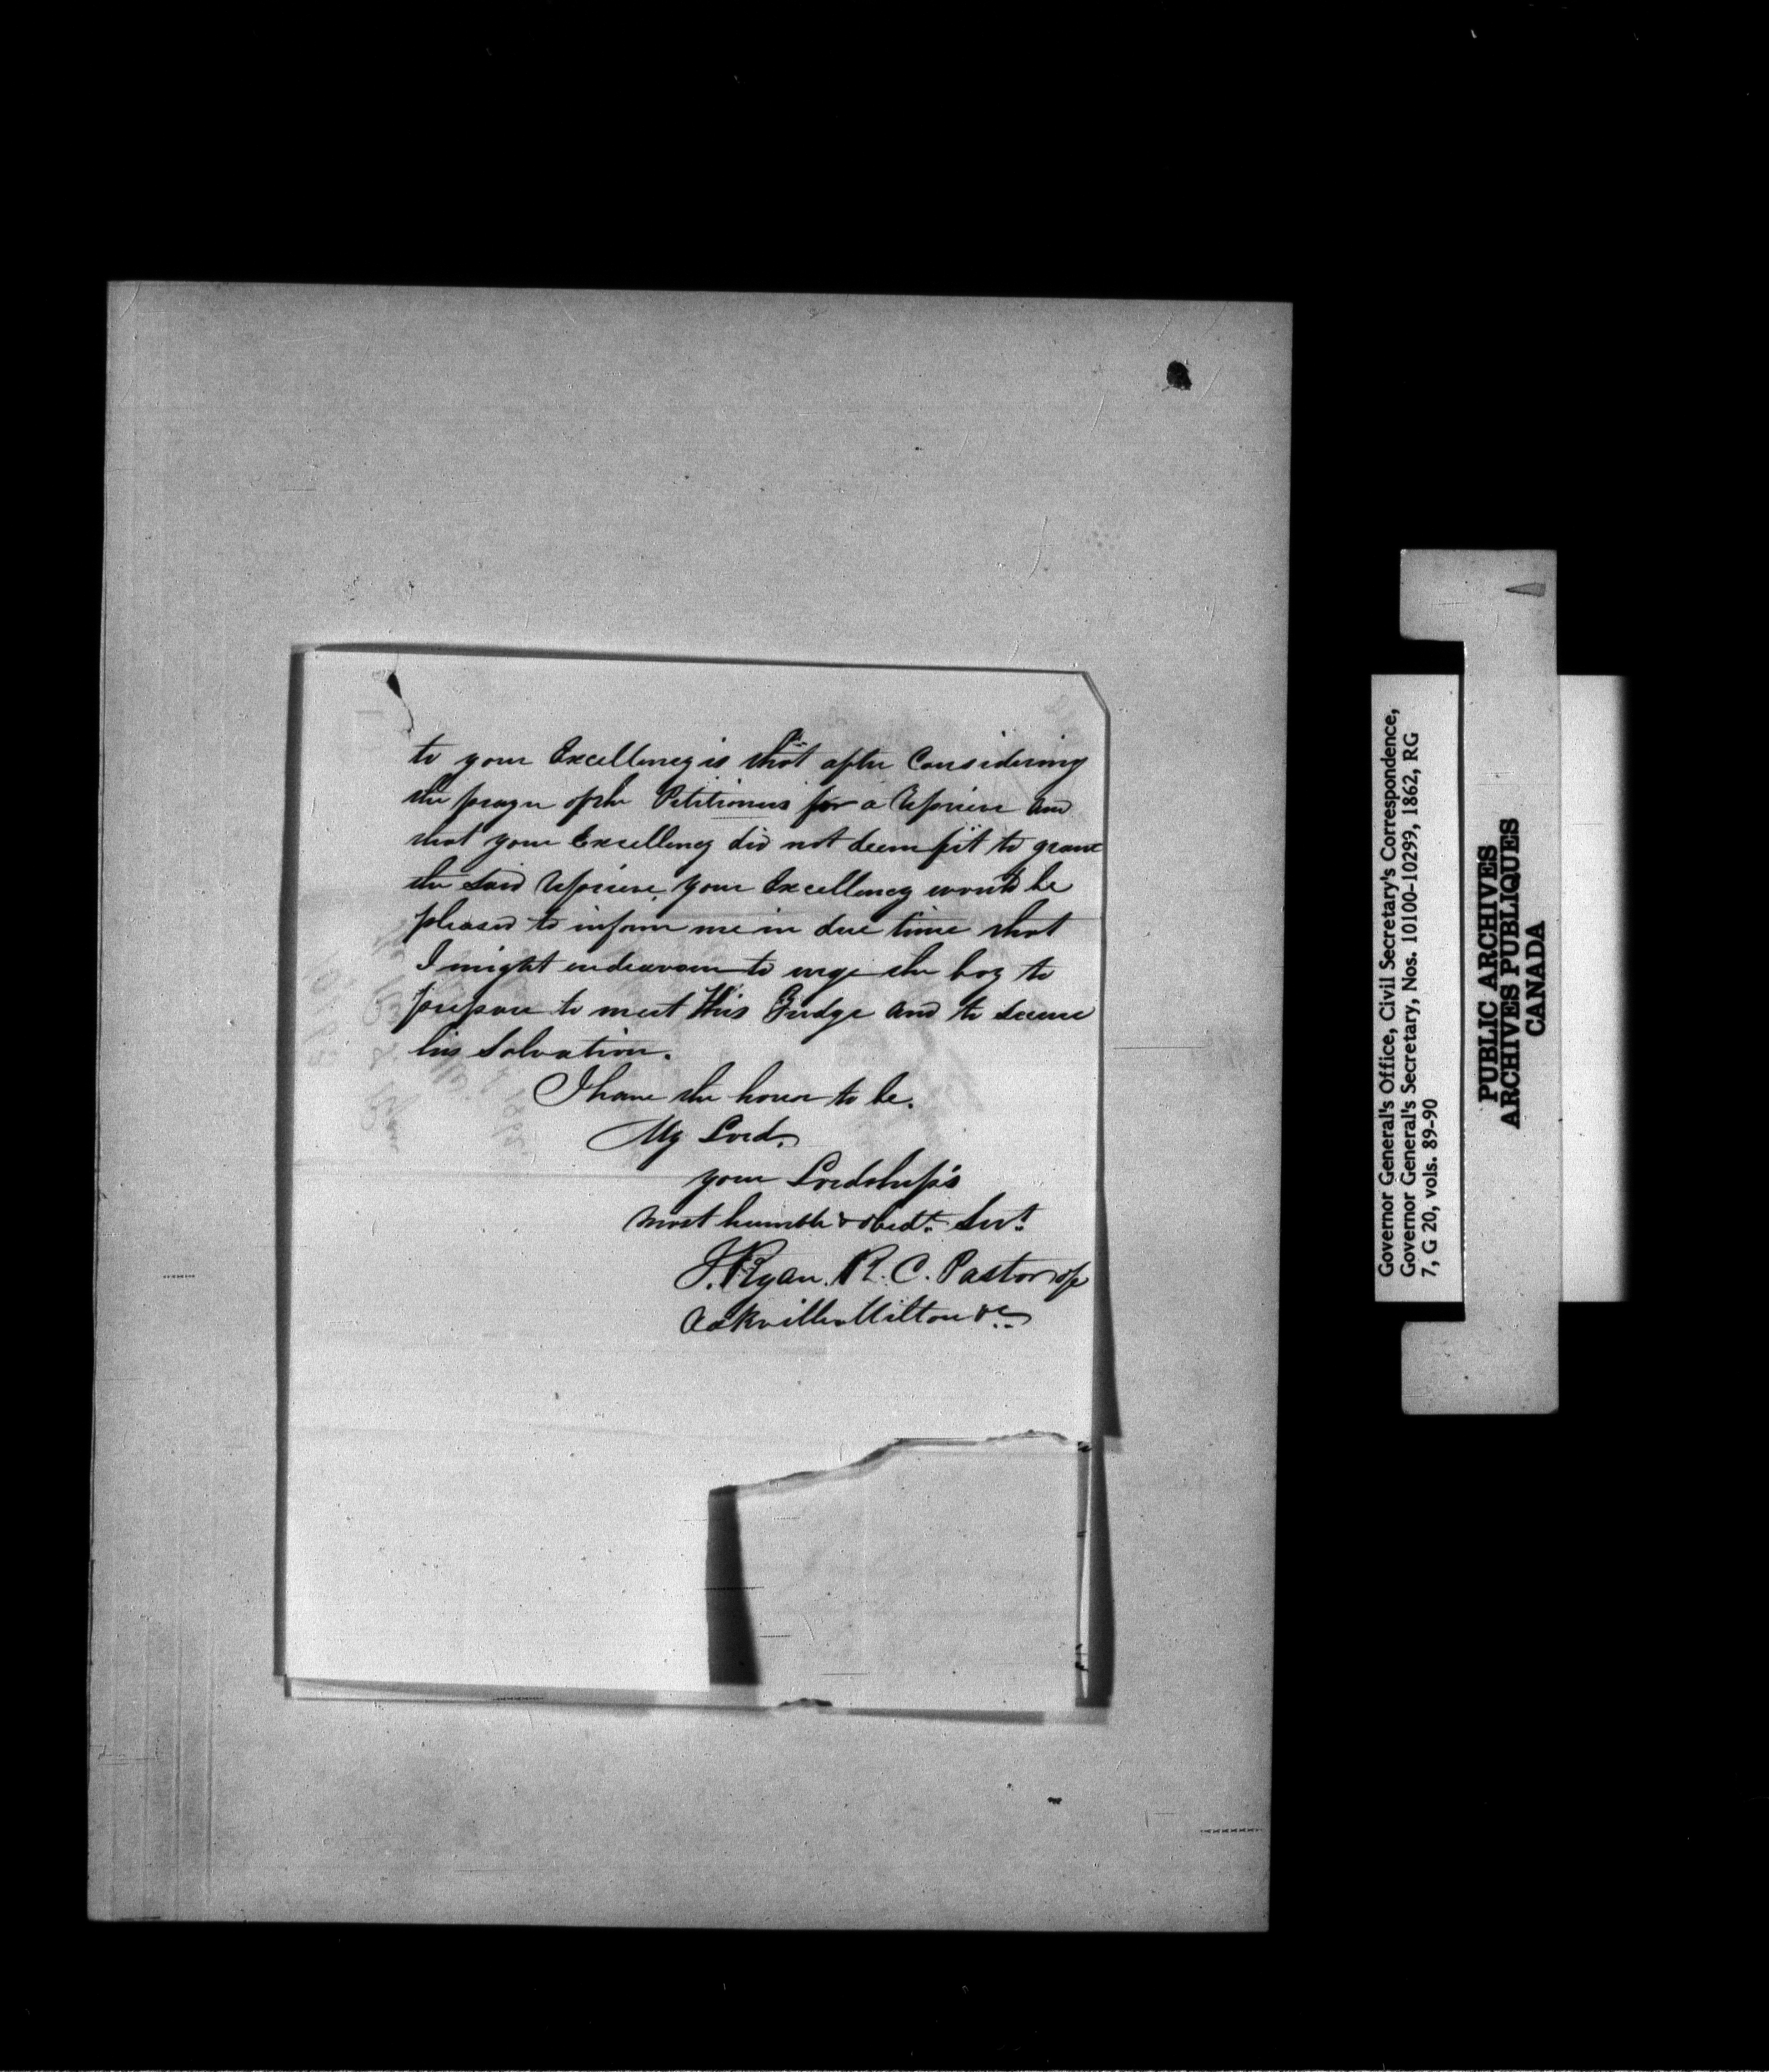 to your Excellency is that after Considering
the prayer of the Petitioners for a reprieve and
that your Excellency did not deem fit to grant
the said reprieve, your Excellency would be
pleased to inform me in due time that
I might endeavour to urge the boy to
prepare to meet His Judge and to secure
his Salvation.
I have the honor to be.
My Lord.
your Lordship's
most humble & obedt. Servt.
J. Ryan. R. C. Pastor of
Oakville Milton &c.
Governor General's Office, Civil Secretary's Correspondence,
Governor General's Secretary, Nos. 10100-10299, 1862, RG
7, G 20, vols. 89-90
PUBLIC ARCHIVES
ARCHIVES PUBLIQUES
CANADA